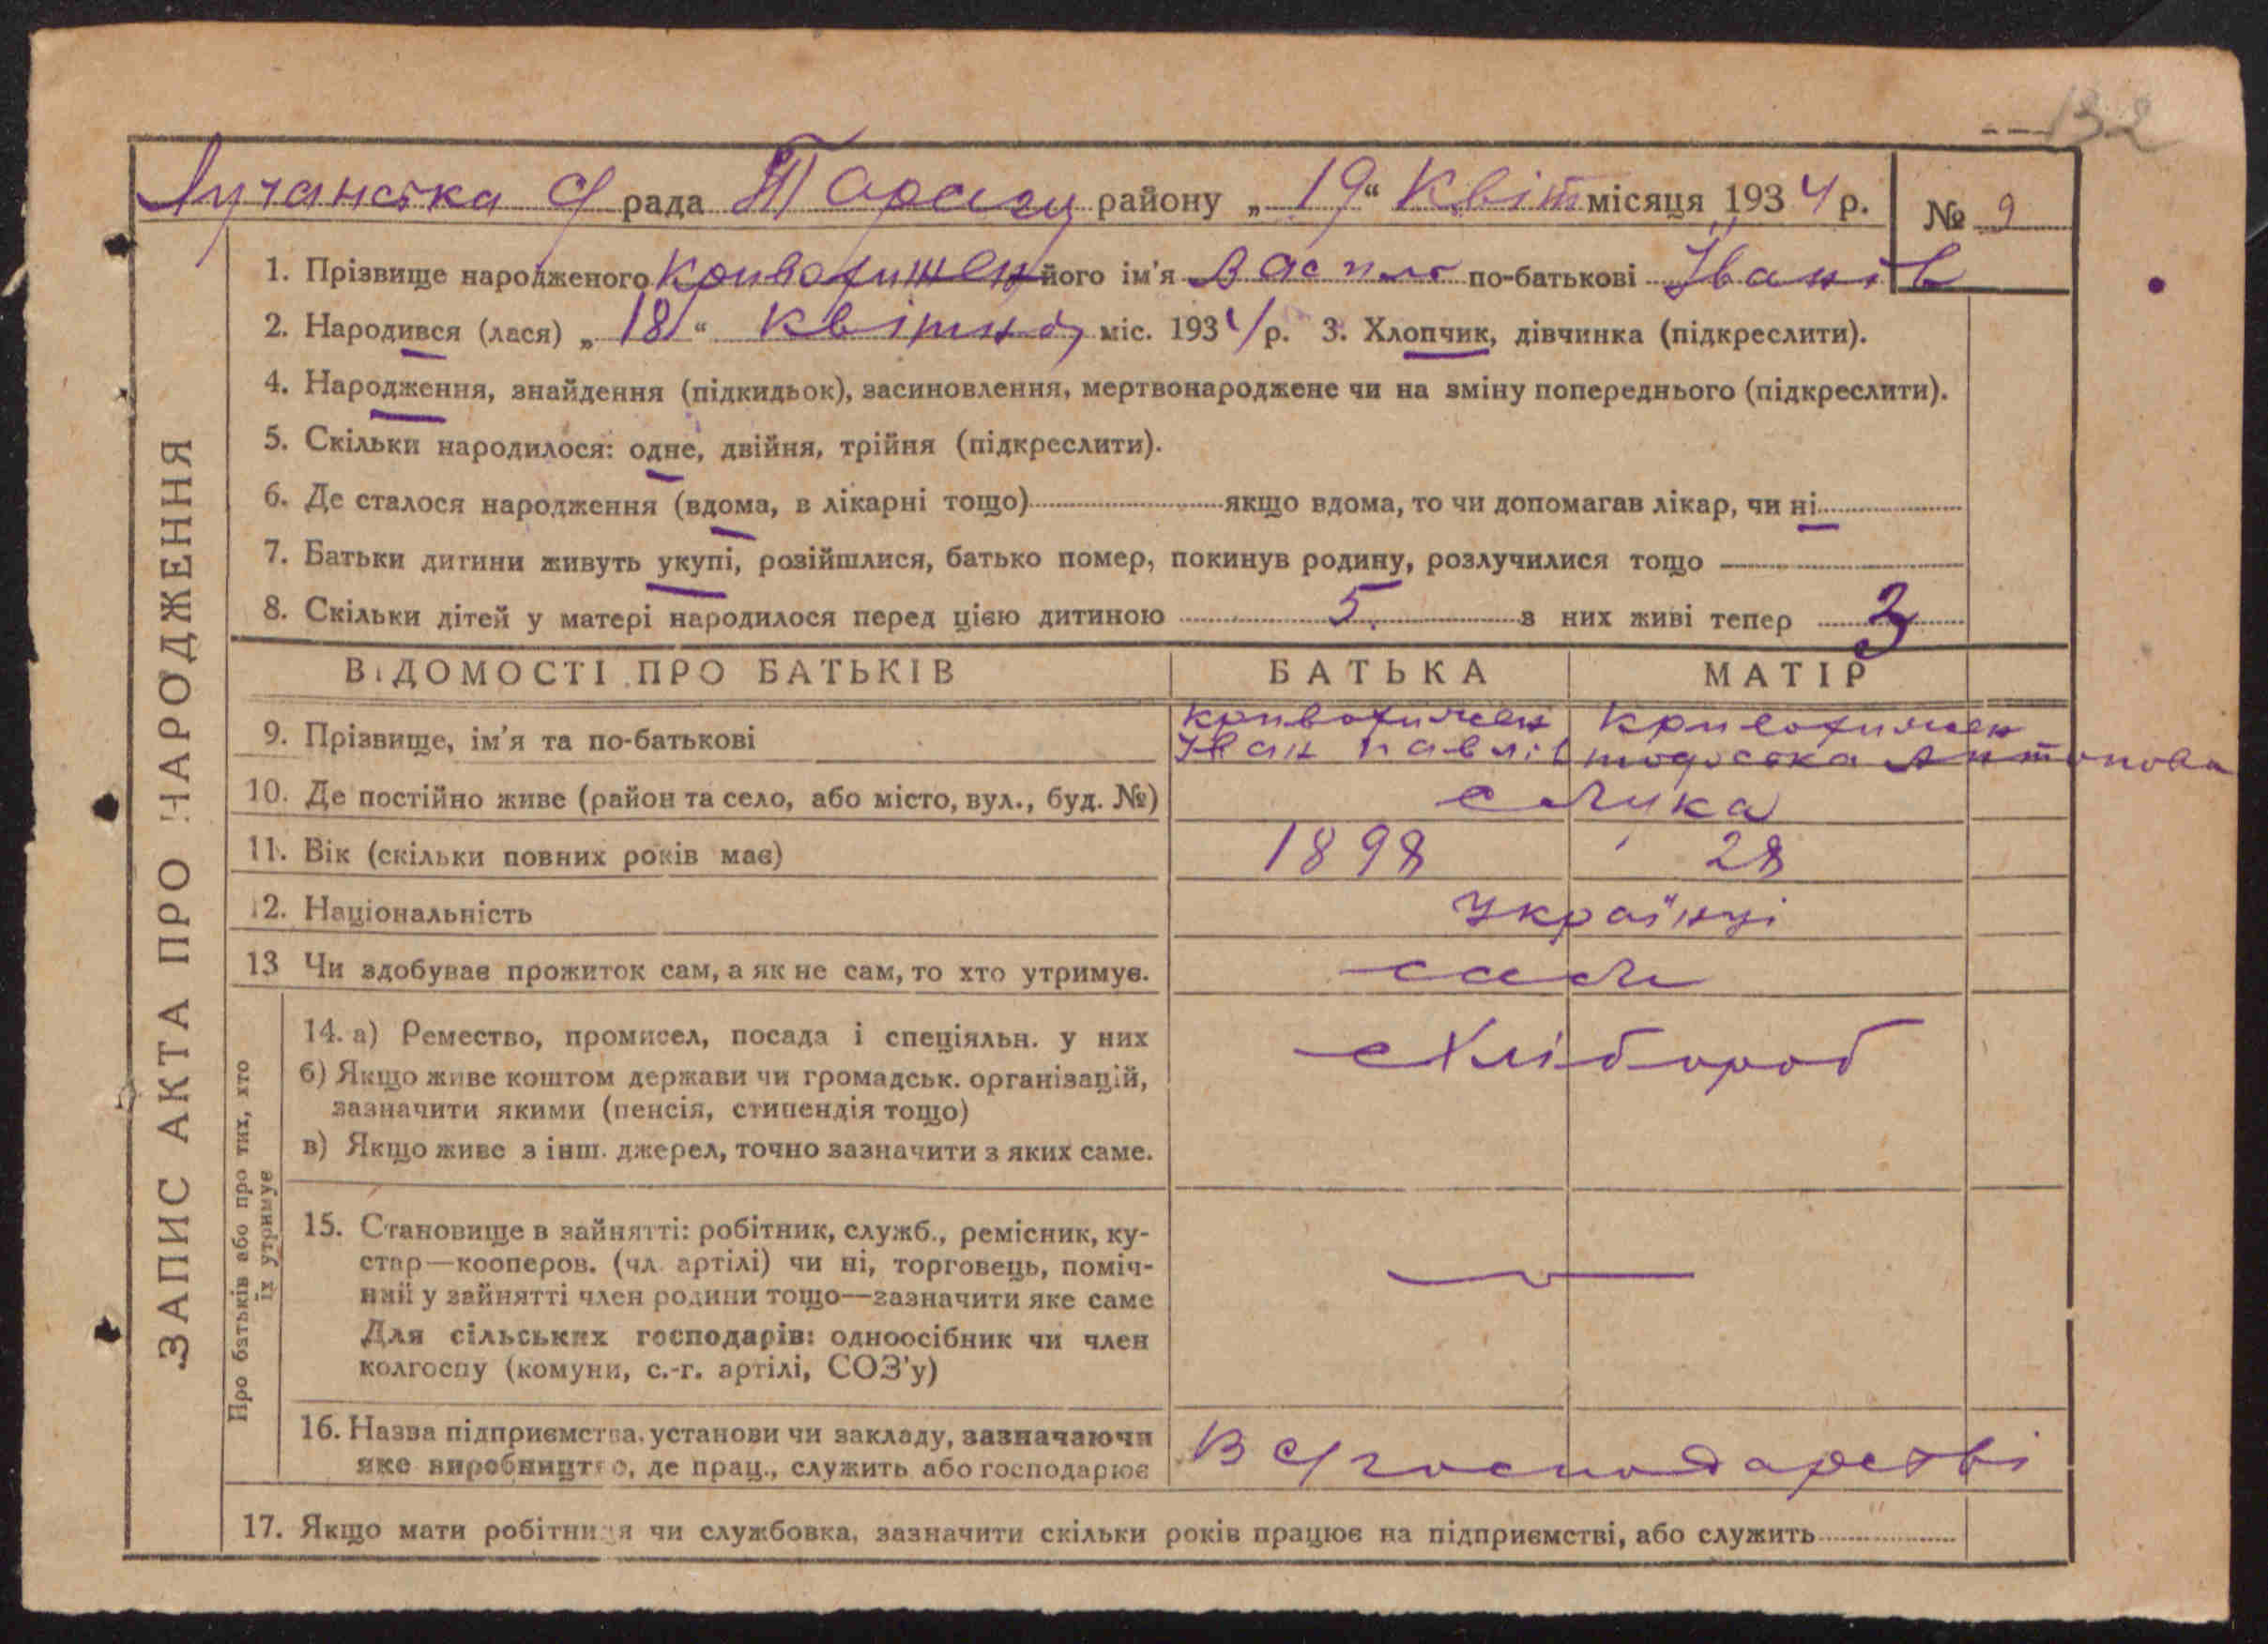 132
Лучанська с/ рада Таращ району „19“ Квіт місяця 1934 р. № 9
1. Прізвище народженого Кривохижен його ім'я Василь по-батькові Іванів
2. Народився (лася) „18“ квітня міс. 1934 р. 3. Хлопчик, дівчинка (підкреслити).
4. Народження, знайдення (підкидьок), засиновлення, мертвонароджене чи на зміну попереднього (підкреслити).
5. Скільки народилося: одне, двійня, трійня (підкреслити).
6. Де сталося народження (вдома, в лікарні тощо) якщо вдома, то чи допомагав лікар, чи ні
7. Батьки дитини живуть укупі, розійшлися, батько помер, покинув родину, розлучилися тощо
8. Скільки дітей у матері народилося перед цією дитиною 5. з них живі тепер 3
ЗАПИС АКТА ПРО НАРОДЖЕННЯ
ВІДОМОСТІ ПРО БАТЬКІВ БАТЬКА МАТІР
9. Прізвище, ім'я та по-батькові Кривохижен Кривохижен
Іван Павлів тодоска Антонова
10. Де постійно живе (район та село, або місто, вул., буд. №) с Лука
11. Вік (скільки повних років має) 1898 28
12. Національність Українці
13 Чи здобуває прожиток сам, а як не сам, то хто утримує. сами
Про батьків або про тих, хто
їх утримує
14. а) Ремество, промисел, посада і спеціяльн. у них Хлібороб
б) Якщо живе коштом держави чи громадськ. організацій,
зазначити якими (пенсія, стипендія тощо)
в) Якщо живе з інш. джерел, точно зазначити з яких саме.
15. Становище в зайнятті: робітник, служб., ремісник, ку-
стар—кооперов. (чл. артілі) чи ні, торговець, поміч-
ний у зайнятті член родини тощо—зазначити яке саме
Для сільських господарів: одноосібник чи член
колгоспу (комуни, с.-г. артілі, СОЗ'у)
16. Назва підприємства, установи чи закладу, зазначаючи
яке виробництво, де прац., служить або господарює В с/господарстві
17. Якщо мати робітниця чи службовка, зазначити скільки років працює на підприємстві, або служить